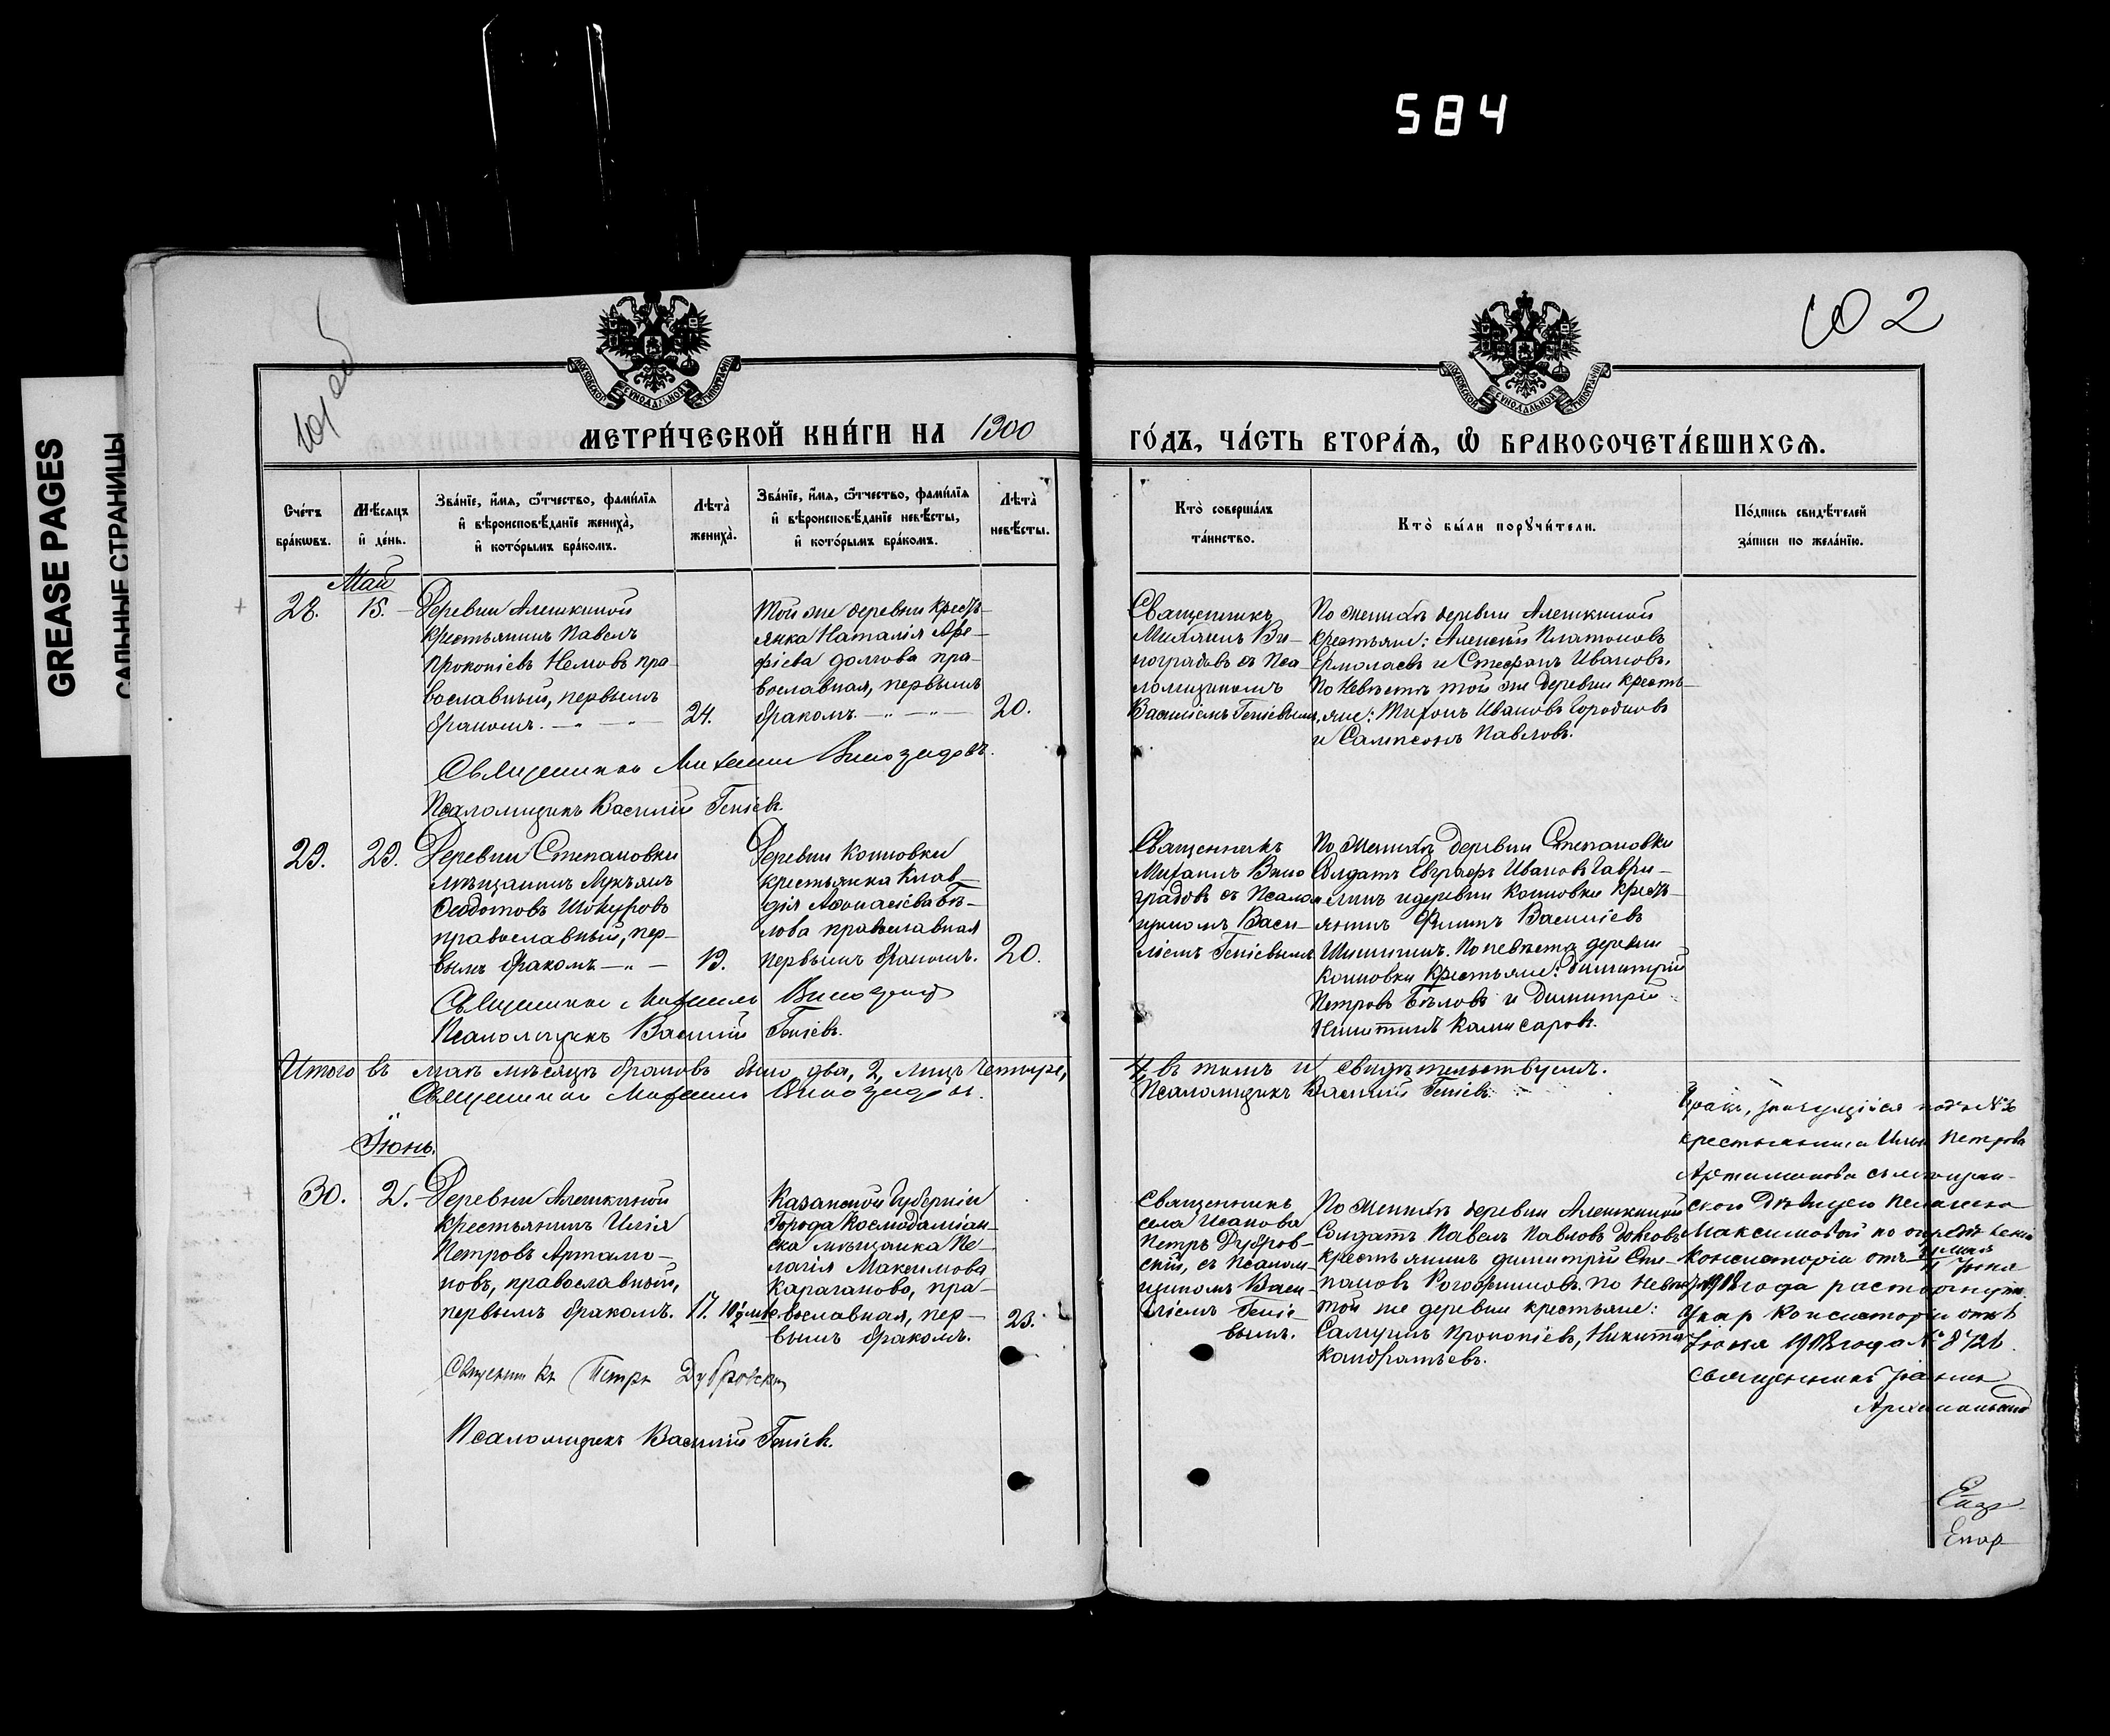 584
102
GREASE PAGES
САЛЬНЫЕ СТРАНИЦЫ
МОСКОВСКОЙ СѴНОДАЛЬНОЙ ТИПОГРАФІИ
МОСКОВСКОЙ СѴНОДАЛЬНОЙ ТИПОГРАФІИ
МЕТРИ́ЧЕСКОЙ КНИ́ГИ НА 1900
ГО́ДЪ, ЧА́СТЬ ВТОРА́Ѧ, Ѽ БРАКОСОЧЕТА́ВШИХСѦ.
Сче́тъ
бра́кѡвъ.
Мѣ́сяцъ
и҆ де́нь.
Зва́нїе, и҆́мя, ѻ҆́тчество, фами́лїя
и҆ вѣроисповѣ́данїе жениха̀,
и҆ кото́рымъ бра́комъ.
Лѣта̀
жениха̀.
Зва́нїе, и҆́мя, ѻ҆́тчество, фами́лїя
и҆ вѣроисповѣ́данїе невѣ́сты,
и҆ кото́рымъ бра́комъ.
Лѣта̀
невѣ́сты.
Кто̀ соверша́лъ
та́инство.
Кто̀ бы́ли порꙋчи́тели.
По́дпись свидѣ́телей
за́писи по жела́нїю.
Май
28.
15.
Деревни Алешкиной
крестьянинъ Павелъ
Прокопіевъ Немовъ пра-
вославный, первымъ
бракомъ.
24.
Той же деревни кресть-
янка Наталія Аре-
фіева Долгова пра-
вославная, первымъ
бракомъ.
20.
Священникъ
Михаилъ Ви-
ноградовъ съ Пса-
ломщикомъ
Василіемъ Геніевымъ
По женихѣ деревни Алешкиной
крестьяне: Алексій Платоновъ
Ермолаевъ и Стефанъ Ивановъ.
По невѣстѣ той же деревни кресть-
яне: Тихонъ Ивановъ Городковъ
и Сампсонъ Павловъ.
Священникъ Михаилъ Виноградовъ.
Псаломщикъ Василій Геніевъ.
29.
29.
Деревни Степановки
мѣщанинъ Лукъянъ
Ѳедотовъ Шокуровъ
православный, пер-
вымъ бракомъ
19.
Деревни Кошовки
крестьянка Клав-
дія Аѳонасіева Бѣ-
лова православная
первымъ бракомъ.
20.
Священникъ
Михаилъ Вино
градовъ съ Псалом
щикомъ Васи-
ліемъ Геніевымъ
По женихѣ деревни Степановки
Солдатъ Евграфъ Ивановъ Гаври-
линъ и деревни Кошовки кресть-
янинъ Филиппъ Василіевъ
Шишкинъ. По невѣстѣ деревни
Кошовки крестьяне: Димитрій
Петровъ Бѣловъ и Димитрій
Никитинъ Камисаровъ.
Священникъ Михаилъ Виноград
Псаломщикъ Василій Геніевъ.
Итого въ маѣ мѣсяцѣ браковъ было два, 2, лицъ четыре,
4, въ томъ и свидѣтельствуемъ.
Священникъ Михаилъ Виноградовъ.
Псаломщикъ Василій Геніевъ.
Іюнь.
30.
2.
Деревни Алешкиной
крестьянинъ Илія
Петровъ Артамо-
новъ, православный,
первымъ бракомъ.
17. 10½ мѣс.
Казанской Губерніи
Города Космодаміан-
ска мѣщанка Пе-
лагія Максимова
Караганова, пра-
вославная, пер-
вымъ бракомъ.
23.
Священникъ
села Исакова
Петръ Дубров-
скій, съ Псалом-
щикомъ Васи-
ліемъ Геніе-
вымъ.
По женихѣ деревни Алешкиной
Солдатъ Павелъ Павловъ Долговъ
крестьянинъ Димитрій Сте-
пановъ Рогожинковъ. По невѣстѣ
той же деревни крестьяне:
Самуилъ Прокопіевъ, Никита
Кондратьевъ.
Бракъ, значущійся подъ № 30
крестьянина Ильи Петрова
Артамонова съ мѣщан-
ской дѣвицею Пелагіею
Максимовой по опредѣленію
Консисторіи отъ
1918 года расторгнутъ.
Указ Консисторіи отъ 6
Іюня 1918 года № 8126.
Священникъ Іоаннъ
Архангельскій
Священникъ Петръ Дубровскій
Псаломщикъ Василій Геніевъ.